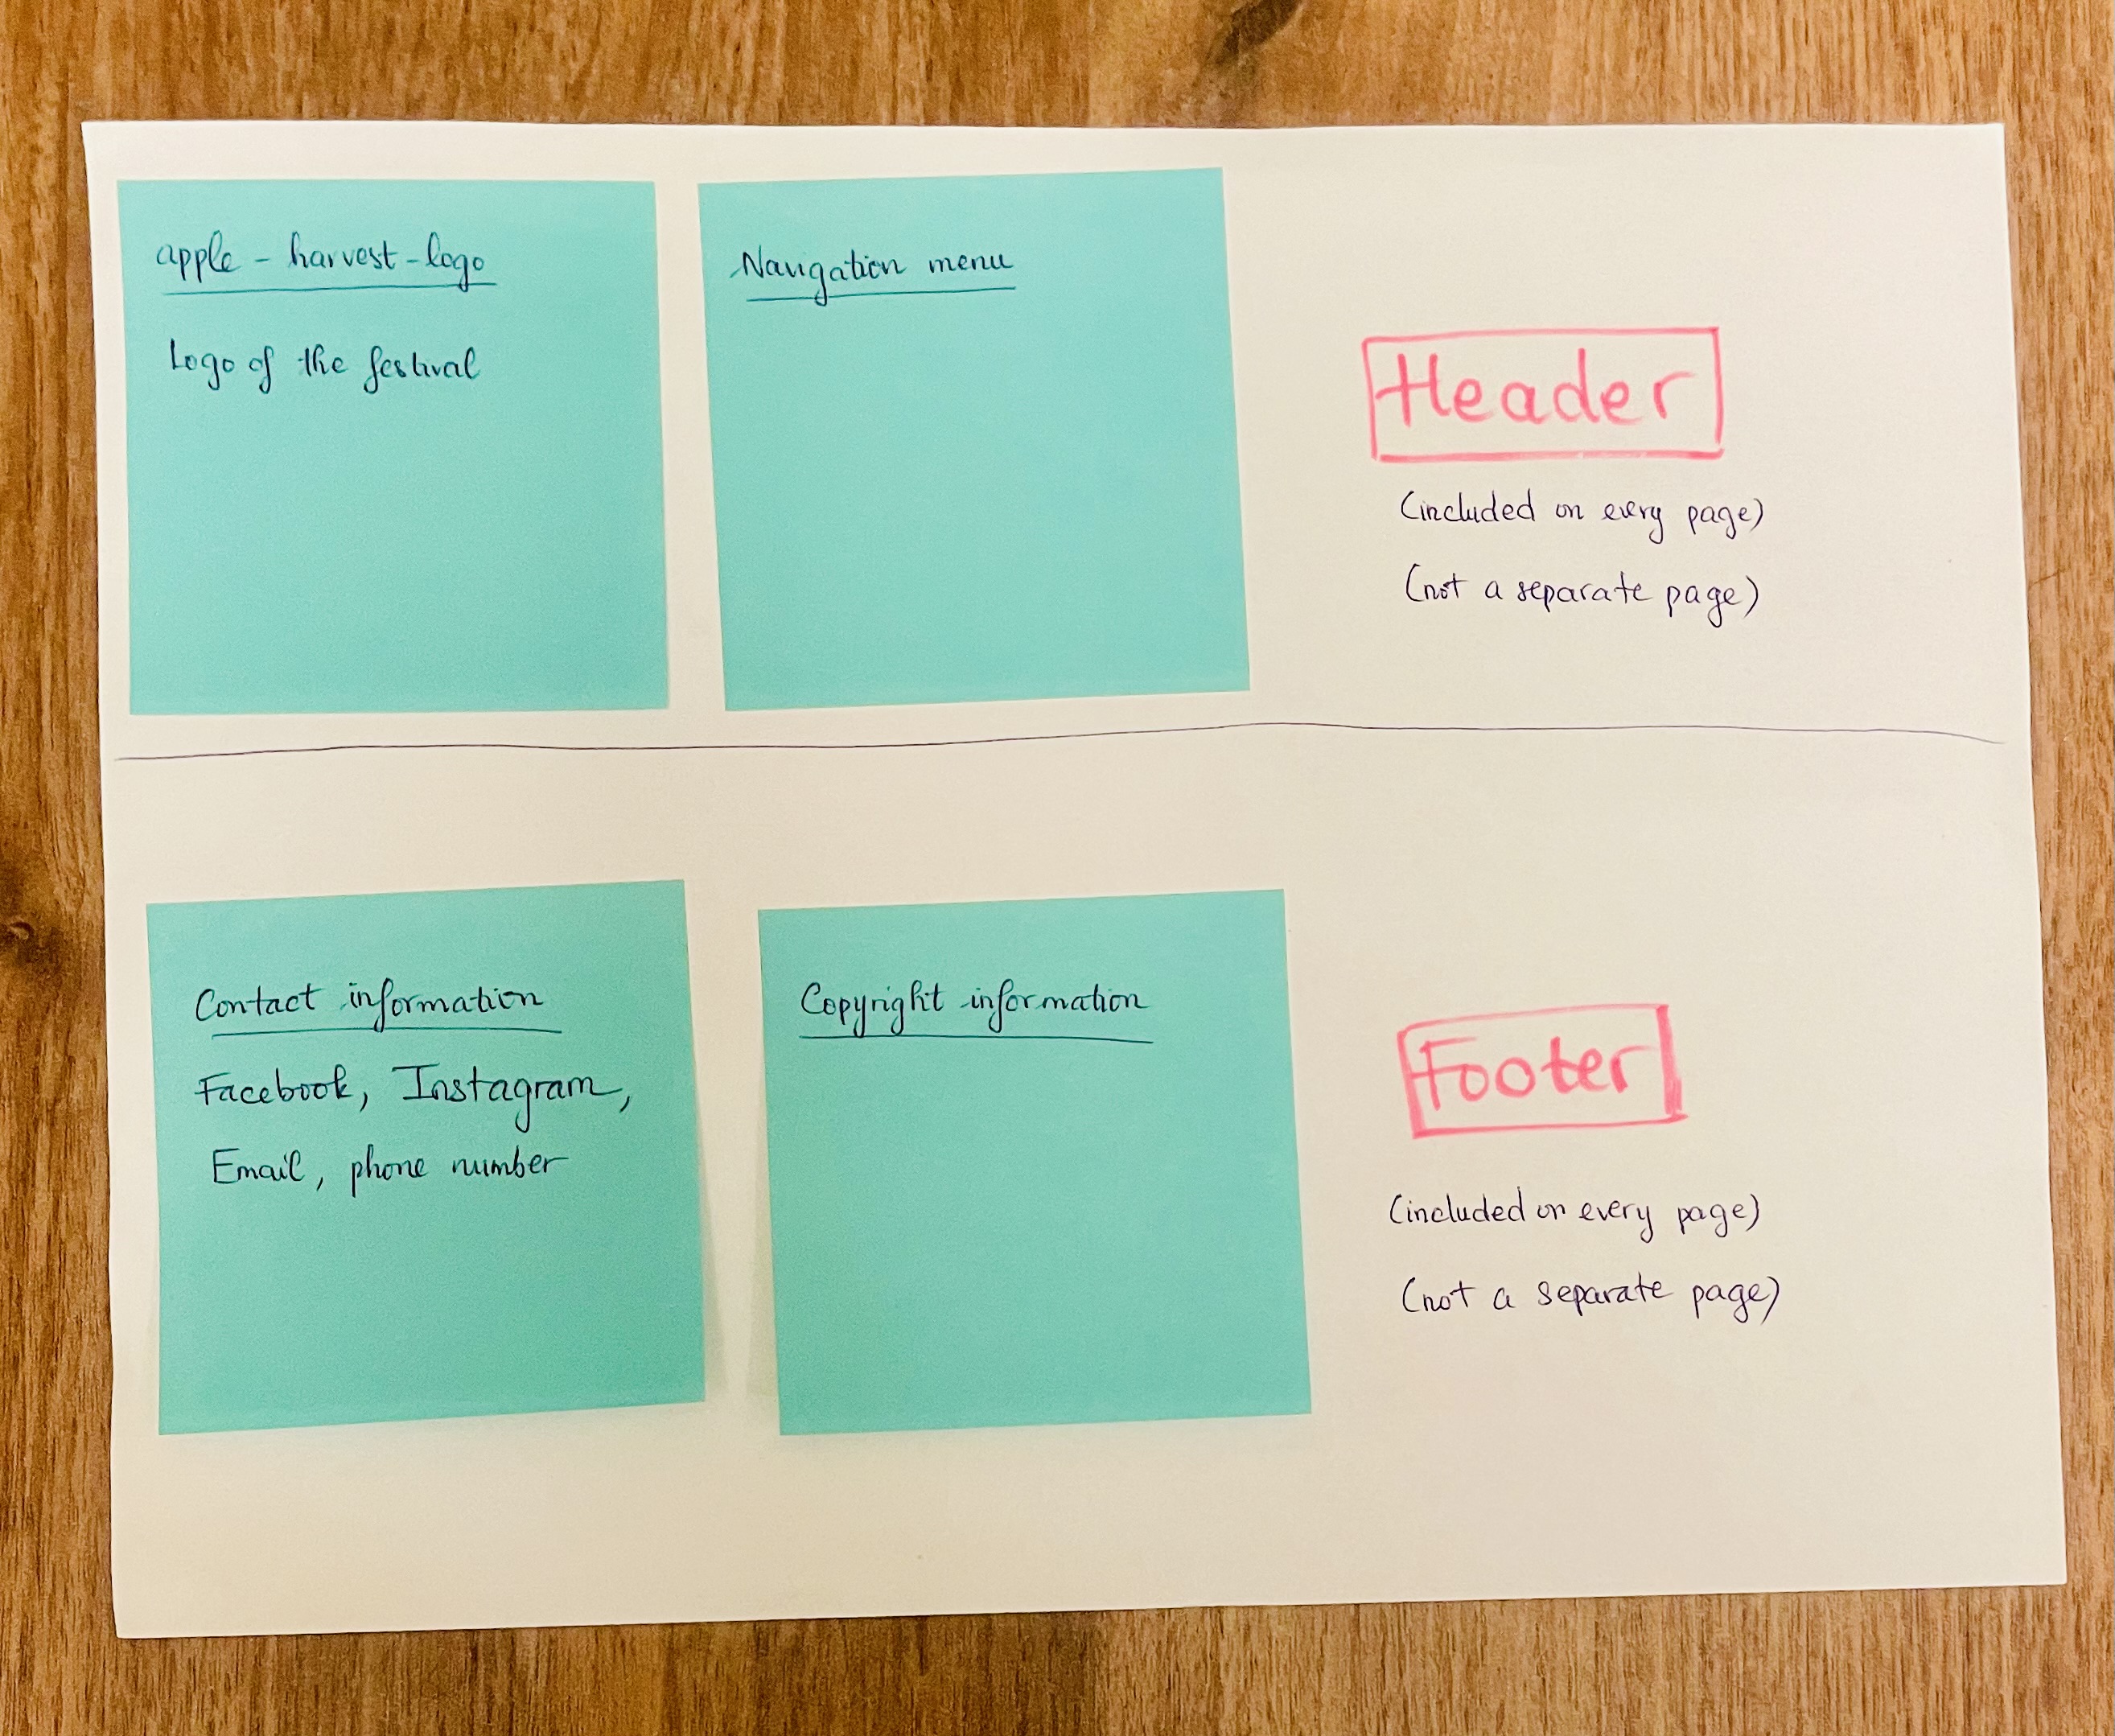 apple - harvest - logo
Logo of the festival
Navigation menu
Header
(included on every page)
(not a separate page)
Contact information
Facebook, Instagram,
Email, phone number
Copyright information
Footer
(included on every page)
(not a separate page)